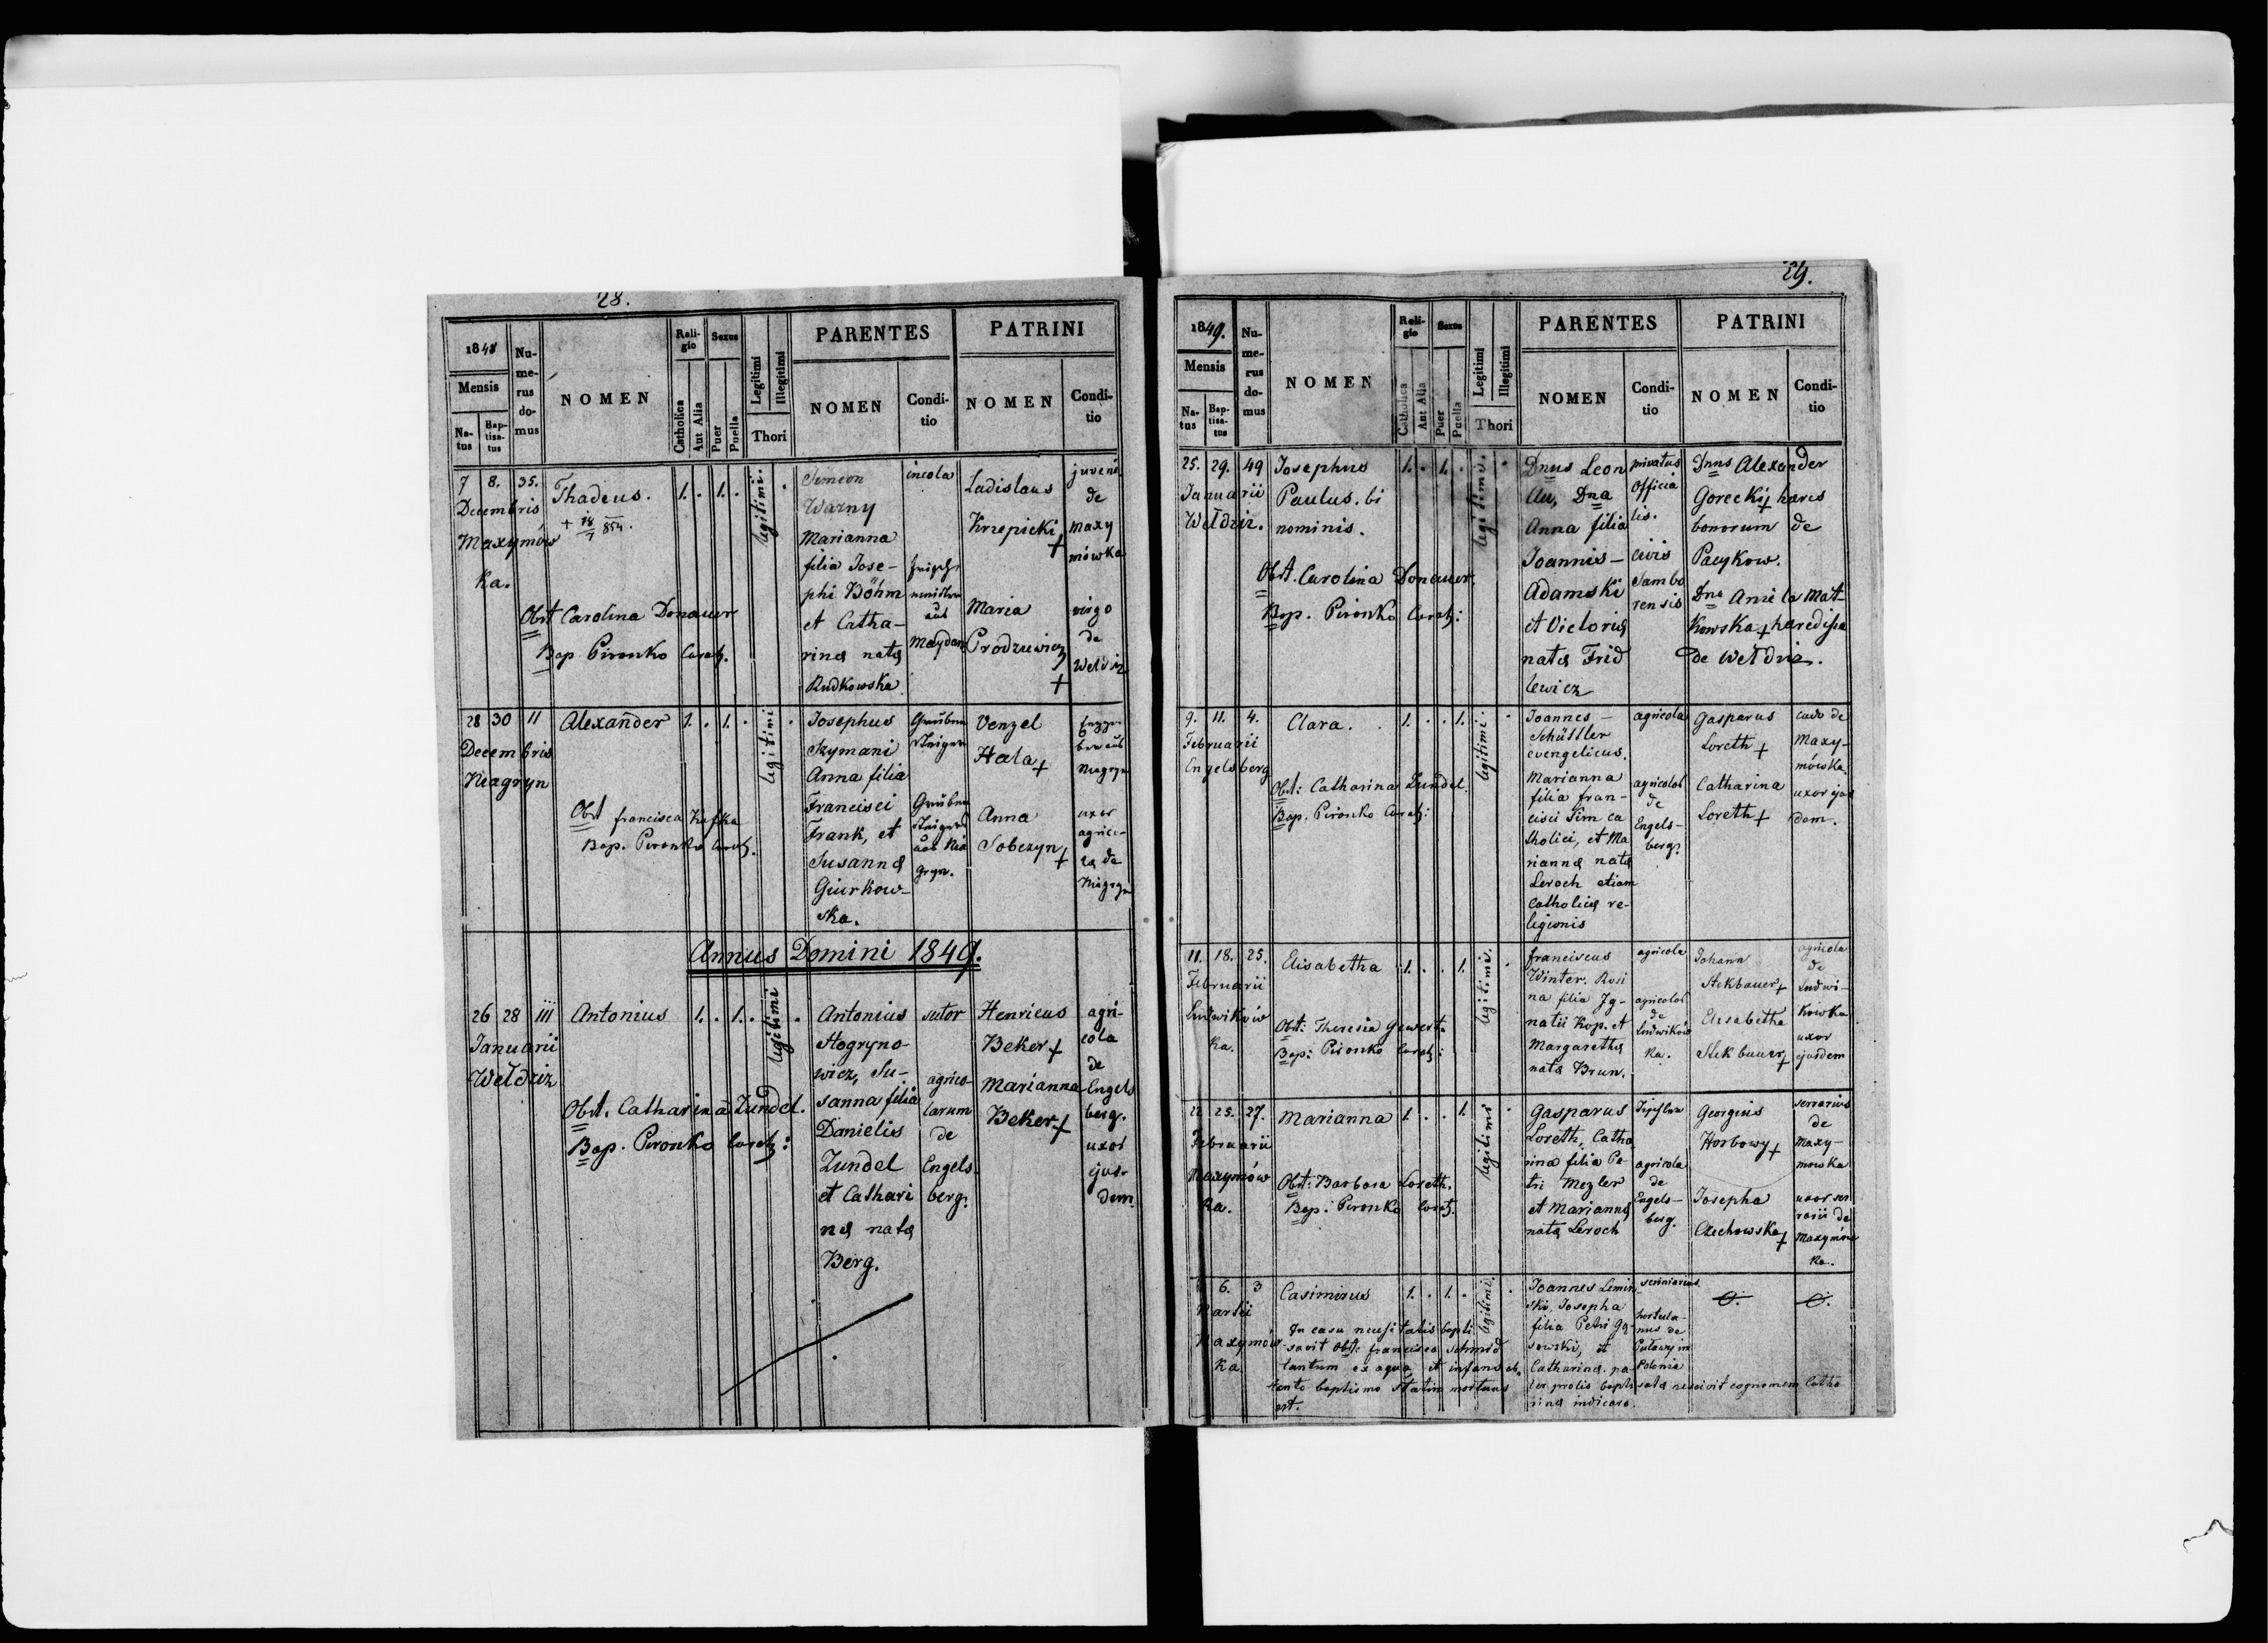 28.
1848
Mensis
Na-
tus
Bap-
tisa-
tus
Nu-
me-
rus
do-
mus
NOMEN
Reli-
gio
Catholica
Aut Alia
Sexus
Puer
Puella
Legitimi
Illegitimi
Thori
PARENTES
NOMEN
Condi-
tio
PATRINI
NOMEN
Condi-
tio
7 8. 35.
Decembris
Maxymów
ka.
Thadeus.
+ 18/7 854.
Obst Carolina Donauer
Bap. Pironko Curatq.
1. . 1. .
legitimi.
Simeon
Warny
Marianna
filia Jose-
phi Böhm
et Catha-
rina nata
Rudkowska
incola
aus
Maydan
Ladislaus
Krzepicki +
Maria
Prodziewicz
+
juvenis
de
maxy
mówka
virgo
de
Weldziz
28 30 11
Decembris
Niagryn
Alexander
Obst francisca Kafka
Bap. Pironko Curatq.
1. . 1. .
legitimi
Josephus
Szymani
Anna filia
Francisci
Frank, et
Susanna
Giurkow-
ska.
Gruben
steiger
Gruben
steiger
aus Nia
gryn.
Venzel
Hala +
Anna
Sobczyn +
Niagryn
uxor
agrico-
la de
Niagryn
Annus Domini 1849.
26 28 111
Januarii
Wełdziz
Antonius
Obst. Catharina Zundel.
Bap. Pironko Curatq:
1. . 1. .
legitimi
Antonius
Hogryno-
wicz, Su-
sanna filia
Danielis
Zundel
et Cathari
na nata
Berg.
sutor
agrico-
larum
de
Engels-
berg.
Henricus
Beker +
Marianna
Beker +
agri-
cola
de
Engels
berg.
uxor
ejus-
dem
29.
1849.
Mensis
Na-
tus
Bap-
tisa-
tus
Nu-
me-
rus
do-
mus
NOMEN
Reli-
gio
Catholica
Aut Alia
Sexus
Puer
Puella
Legitimi
Illegitimi
Thori
PARENTES
NOMEN
Condi-
tio
PATRINI
NOMEN
Condi-
tio
25. 29. 49
Januarii
Wełdziz.
Josephus
Paulus. bi
nominis.
Obst. Carolina Donauer
Bap. Pironko Curatq:
1. . 1. .
legitimi.
Dnus Leon
Au, Dna
Anna filia
Joannis –
Adamski
et Victoria
nata Frid
lewicz
privatus
Officia
lis.
civis
Sambo
rensis
Dnus Alexander
Gorecki + hares
bonorum de
Pacykow.
Dna Aniela Mat-
kowska + haredissa
de Wełdziz.
9. 11. 4.
Februarii
Engelsberg
Clara.
Obst: Catharina Zundel.
Bap. Pironko Curatq:
1. . . 1.
legitimi.
Joannes –
Schüssler
evengelicus.
Marianna
filia fran-
cisci Sim ca
tholici, et Ma
rianna nata
Leroch etiam
catholica re-
ligionis
agricola
agricola
de
Engels-
berg.
Gasparus
Loreth +
Catharina
Loreth +
de
Maxy-
mówka.
uxor ejus
dem.
11. 18. 25.
Februarii
Ludwików
ka.
Elisabetha
Obst: Theresia Gewert.
Bap: Pironko Curatq:
1. . . 1.
legitimi.
franciscus
Winter. Rosi
na filia Ig-
natii Kop. et
Margaretha
nata Brun.
agricola
agricola
de
Ludwików
ka.
Johann
Stekbauer +
Elisabetha
Stekbauer +
agricola
de
Ludwi-
kówka
uxor
ejusdem
22 25. 27.
Februarii
Maxymów
ka.
Marianna
Obst: Barbara Loreth.
Bap: Pironko Curatq.
1. . . 1.
legitimi
Gasparus
Loreth, Catha
rina filia Pe-
tri Mezler
et Marianna
nata Leroch
agricola
de
Engels-
berg.
Georgius
Horbowy +
Josepha
Czechowska +
serrarius
de
Maxy-
mowka
uxor ser
rarii de
Maxymów
ka.
6. 3
Martii
Maxymów
ka
Casimirus
In casu necessitatis bapti
savit obst: francisca Schmid
tantum ex aqua et infans ob-
tento baptismo statim mortuus
est.
1. . 1. .
legitimi.
Joannes Lemin
ski, Josepha
filia Petri Gą-
sowski, et
Catharina. pa-
ter prolis bapti sata nescivit cognomen Catha
rina indicare.
hortula-
nus de
Puławy in
Polonia